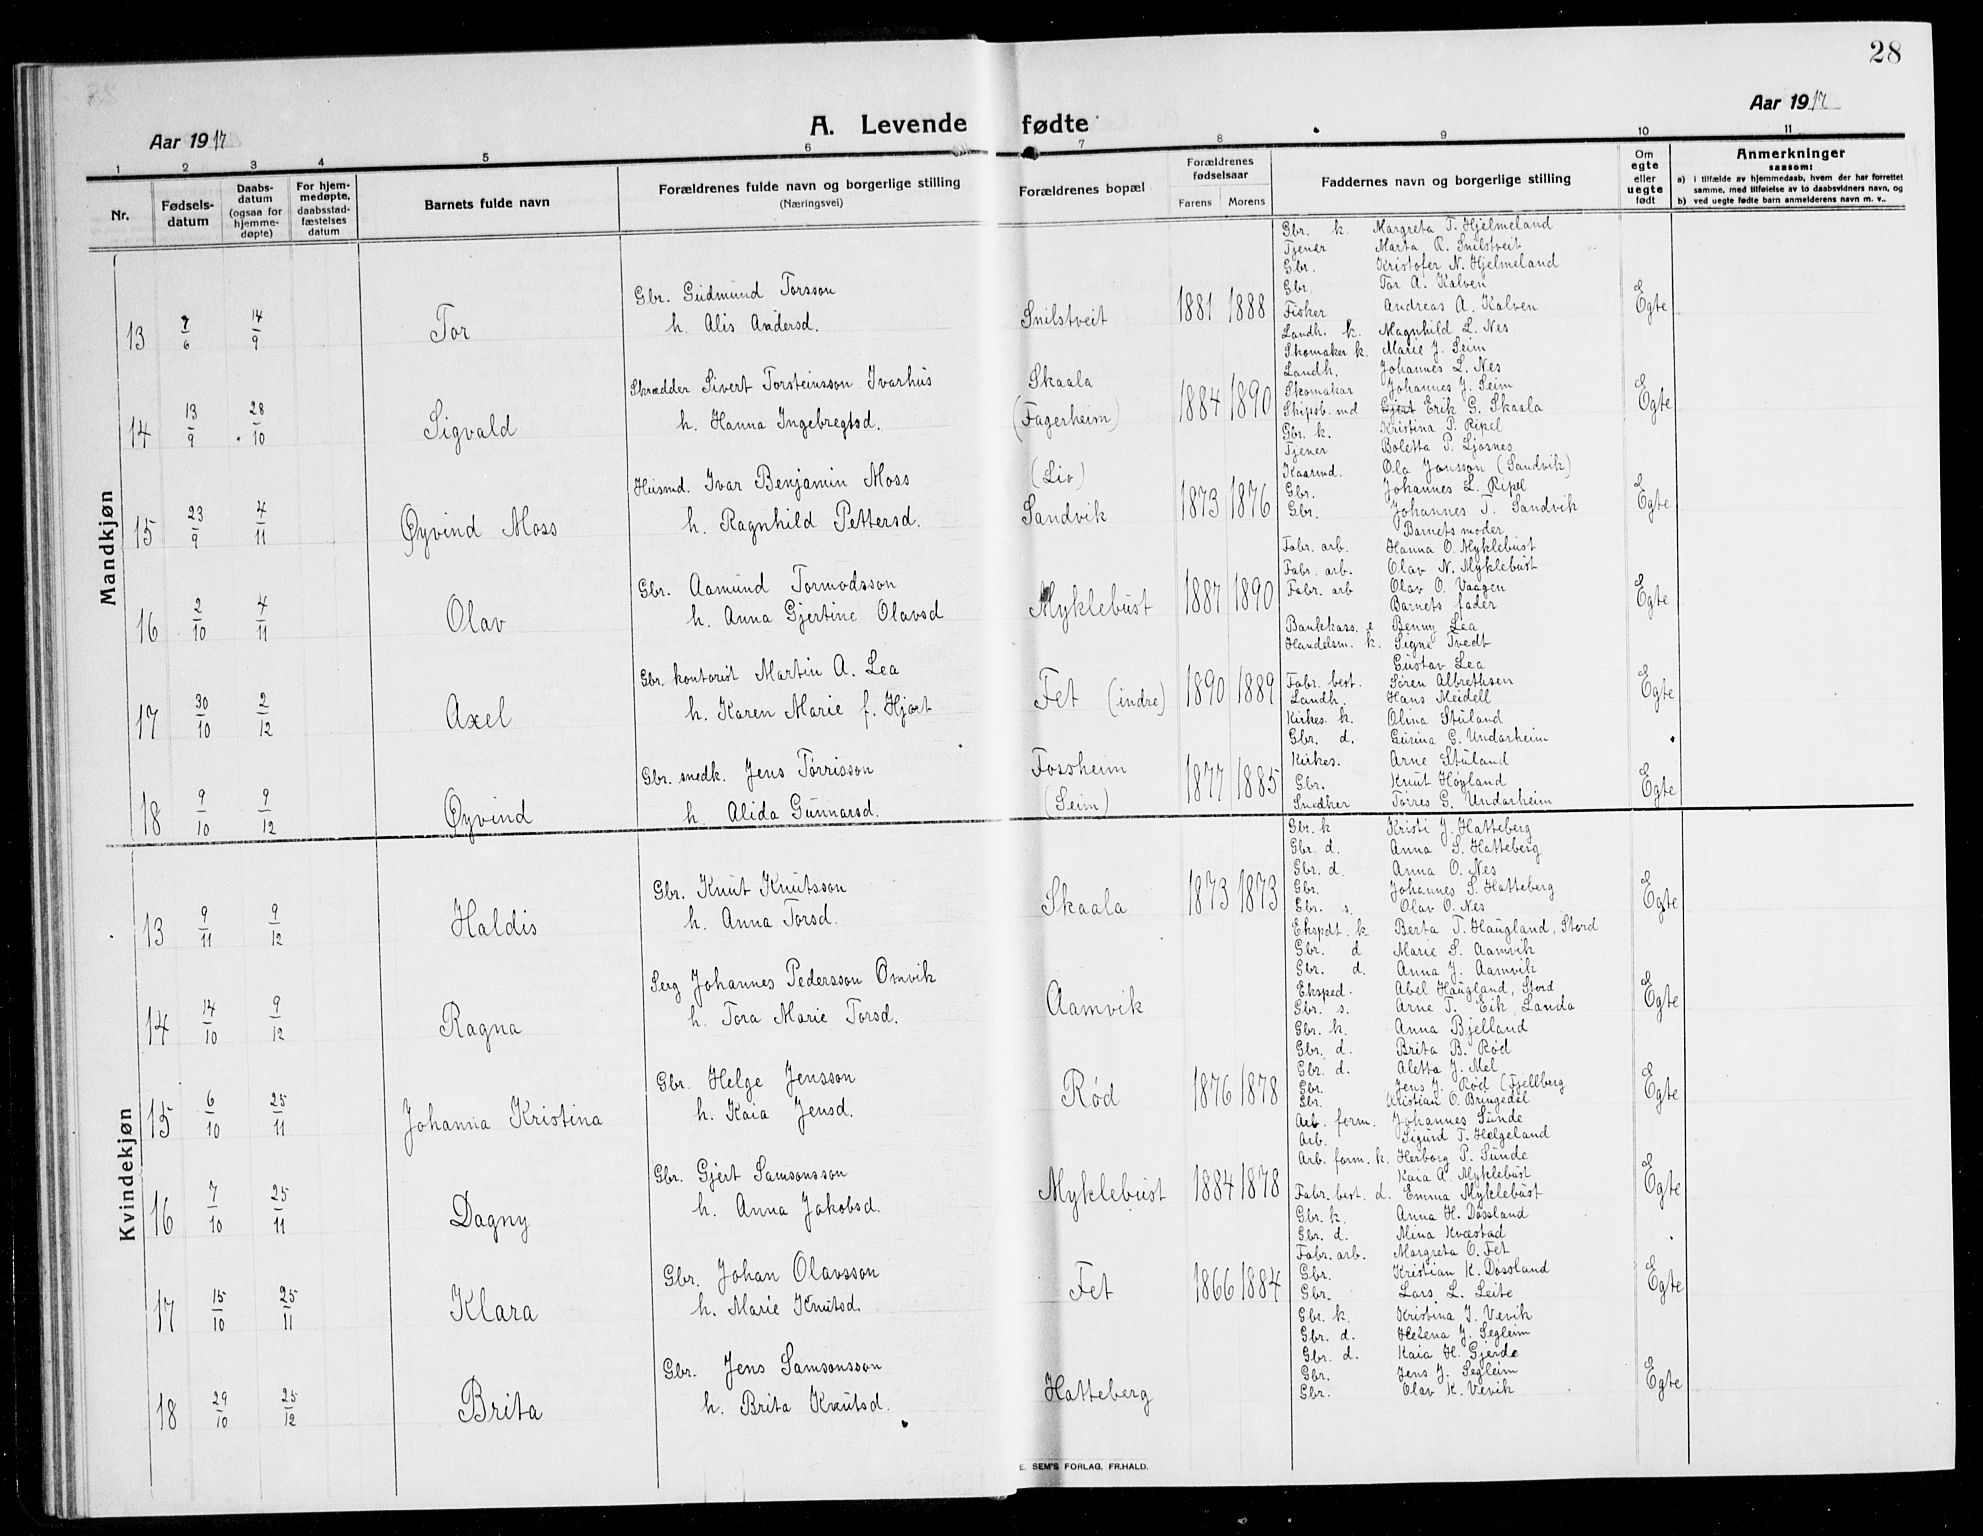 28
Aar 1917
A. Levende fødte
Aar 1917
1 2 3 4 5 6 7 8 9 10 11
Nr.
Fødsels-
datum
Daabs-
datum
(ogsaa for
hjemme-
døpte)
For hjem-
medøpte,
daabsstad-
fæstelses
datum
Barnets fulde navn
Forældrenes fulde navn og borgerlige stilling
(Næringsvei)
Forældrenes bopæl
Forældrenes
fødselsaar
Farens Morens
Faddernes navn og borgerlige stilling
Om
egte
eller
uegte
født
Anmerkninger
saasom:
a) i tilfælde av hjemmedaab, hvem der har forrettet
samme, med tilføielse av to daabsvidners navn, og
b) ved uegte fødte barn anmelderens navn m. v..
Mandkjøn
13 7/6 14/9 Tor
Gbr. Gudmund Torsson
h. Alis Andersd.
Snilstveit 1881 1888
Gbr. k. Margreta T. Hjelmeland
Tjener Marta R. Snilstveit
Gbr. Kristofer N. Hjelmeland
Gbr. Tor A. Kalven
Fisker Andreas A. Kalven
Egte
14 13/9 28/10 Sigvald
Skrædder Sivert Torsteinsson Ivarhus
h. Hanna Ingebregtsd.
Skaala
(Fagerheim)
1884 1890
Landh. k. Magnhild L. Nes
Skomaker k. Marie J. Seim
Landh. Johannes L. Nes
Skomakar Johannes J. Seim
Skipsb. md Gjert Erik G. Skaala
Egte
15 23/9 4/11 Øyvind Moss
Husmd. Ivar Benjamin Moss
h. Ragnhild Pettersd.
(Lio)
Sandvik
1873 1876
Gbr. k. Kristina P. Ripel
Tjener Boletta P. Ljosnes
Kaarmd. Ola Jonsson (Sandvik)
Gbr. Johannes L. Ripel
Gbr. Johannes T. Sandvik
Egte
16 2/10 4/11 Olav
Gbr. Aamund Tormodsson
h. Anna Gjertine Olavsd
Myklebust 1887 1890
Barnets moder
Fabr. arb. Hanna O. Myklebust
Fabr. arb. Olav N. Myklebust
Fabr. arb Olav O. Vaagen
Barnets fader
Egte
17 30/10 2/12 Axel
Gbr. kontorist Martin A. Lea
h. Karen Marie f. Hjort
Fet (indre) 1890 1889
Bankkass. e Benny Lea
Handelsm. k. Signe Tvedt
Gustav Lea
Fabr. best. Søren Albrethsen
Landh. Hans Meidell
Egte
18 9/10 9/12 Øyvind
Gbr. snedk. Jens Tørrisson
h. Alida Gunnarsd.
Fossheim
(Seim)
1877 1885
Kirkes. k. Olina Stuland
Gbr. d. Gurina G. Undarheim
Kirkes. Arne Stuland
Gbr. Knut Høyland
Snedker Tørres G. Undarheim
Egte
Kvindekjøn
13 9/11 9/12 Haldis
Gbr. Knut Knutsson
h. Anna Torsd.
Skaala 1873 1873
Gbr. k Kristi J. Hatteberg
Gbr. d. Anna S. Hatteberg
Gbr. d. Anna O. Nes
Gbr. Johannes S. Hatteberg
Gbr. s. Olav O. Nes
Egte
14 14/10 9/12 Ragna
Serg Johannes Pedersson Omvik
h. Tora Marie Torsd.
Aamvik
Ekspdt. k. Berta T. Haugland, Stord
Gbr. d Marie S. Aamvik
Gbr. d. Anna J. Aamvik
Eksped. Abel Haugland, Stord
Gbr. s. Arne T. Eik, Landa
Egte
15 6/10 25/11 Johanna Kristina
Gbr. Helge Jensson
h. Kaia Jensd.
Rød 1876 1878
Gbr. k. Anna Bjelland
Gbr. d. Brita B. Rød
Gbr. d. Aletta J. Mel
Gbr. Jens J. Rød (Fjellberg
Gbr. Kristian O. Bringedal
Egte
16 7/10 25/11 Dagny
Gbr. Gjert Samsonsson
h. Anna Jakobsd.
Myklebust 1884 1878
Arb. form. Johannes Sunde
Arb. Sigurd T. Helgeland
Arb. form. k. Herborg P. Sunde
Kaia A. Myklebust
Fabr. best. d. Emma Myklebust
Egte
17 15/10 25/11 Klara
Gbr. Johan Olavsson
h. Marie Knutsd.
Fet 1866 1884
Gbr. k. Anna H. Døssland
Gbr. d. Mina Kvæstad
Fabr. arb. Margreta O. Fet
Gbr. Kristian K. Døssland
Gbr. Lars L. Leite
Egte
18 29/10 25/12 Brita
Gbr. Jens Samsonsson
h. Brita Knutsd.
Hatteberg
Gbr. k. Kristina I. Vevik
Gbr. d. Helena J. Segleim
Gbr. d. Kaia H. Gjerde
Gbr. Jens J. Segleim
Gbr. Olav K. Vevik
Egte
E. SEM'S FORLAG, FR.HALD.